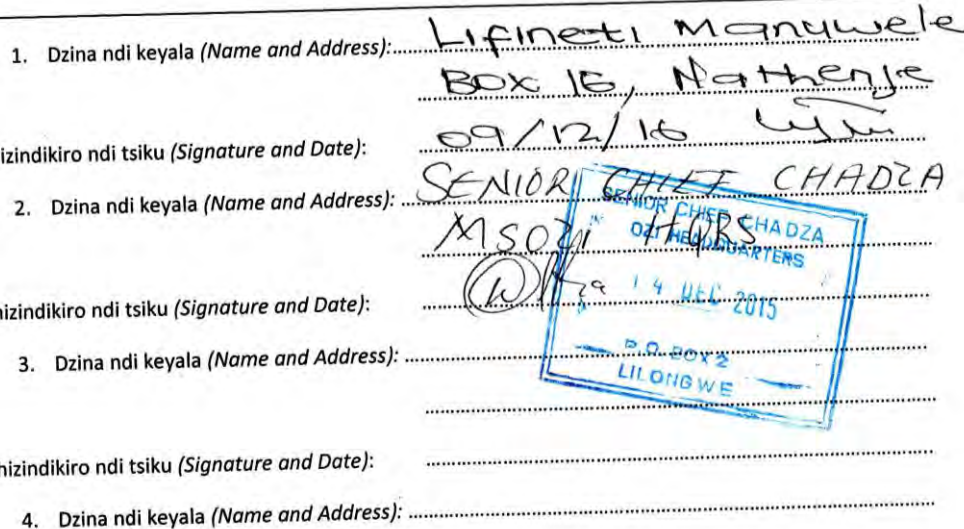 1. Dzina ndi keyala (Name and Address): Lifineti Manywele
BOX 16, Nathenje
izindikiro ndi tsiku (Signature and Date): 09/12/16
2. Dzina ndi keyala (Name and Address): SENIOR CHIEF CHADZA
MSOZI HQRS
SENIOR CHIEF CHADZA
OZI HEADQUARTERS
14 DEC 2015
P.O. BOX 2
LILONGWE
hizindikiro ndi tsiku (Signature and Date):
3. Dzina ndi keyala (Name and Address):
hizindikiro ndi tsiku (Signature and Date):
4. Dzina ndi keyala (Name and Address):